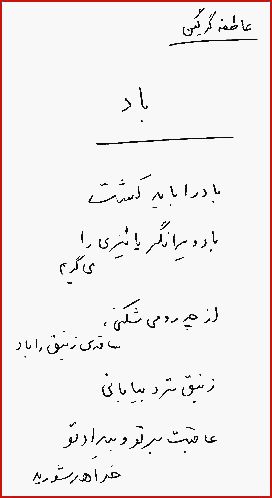 عاطفه گرگین
باد
باد را باید کشت
باد ویرانگر پائیزی را
می گویم
از چه رو می شکنی،
ساقه‌ی زنبق را باد
زنبق ترد بیابانی
عاقبت بر تو و بیداد تو
خواهد شورید